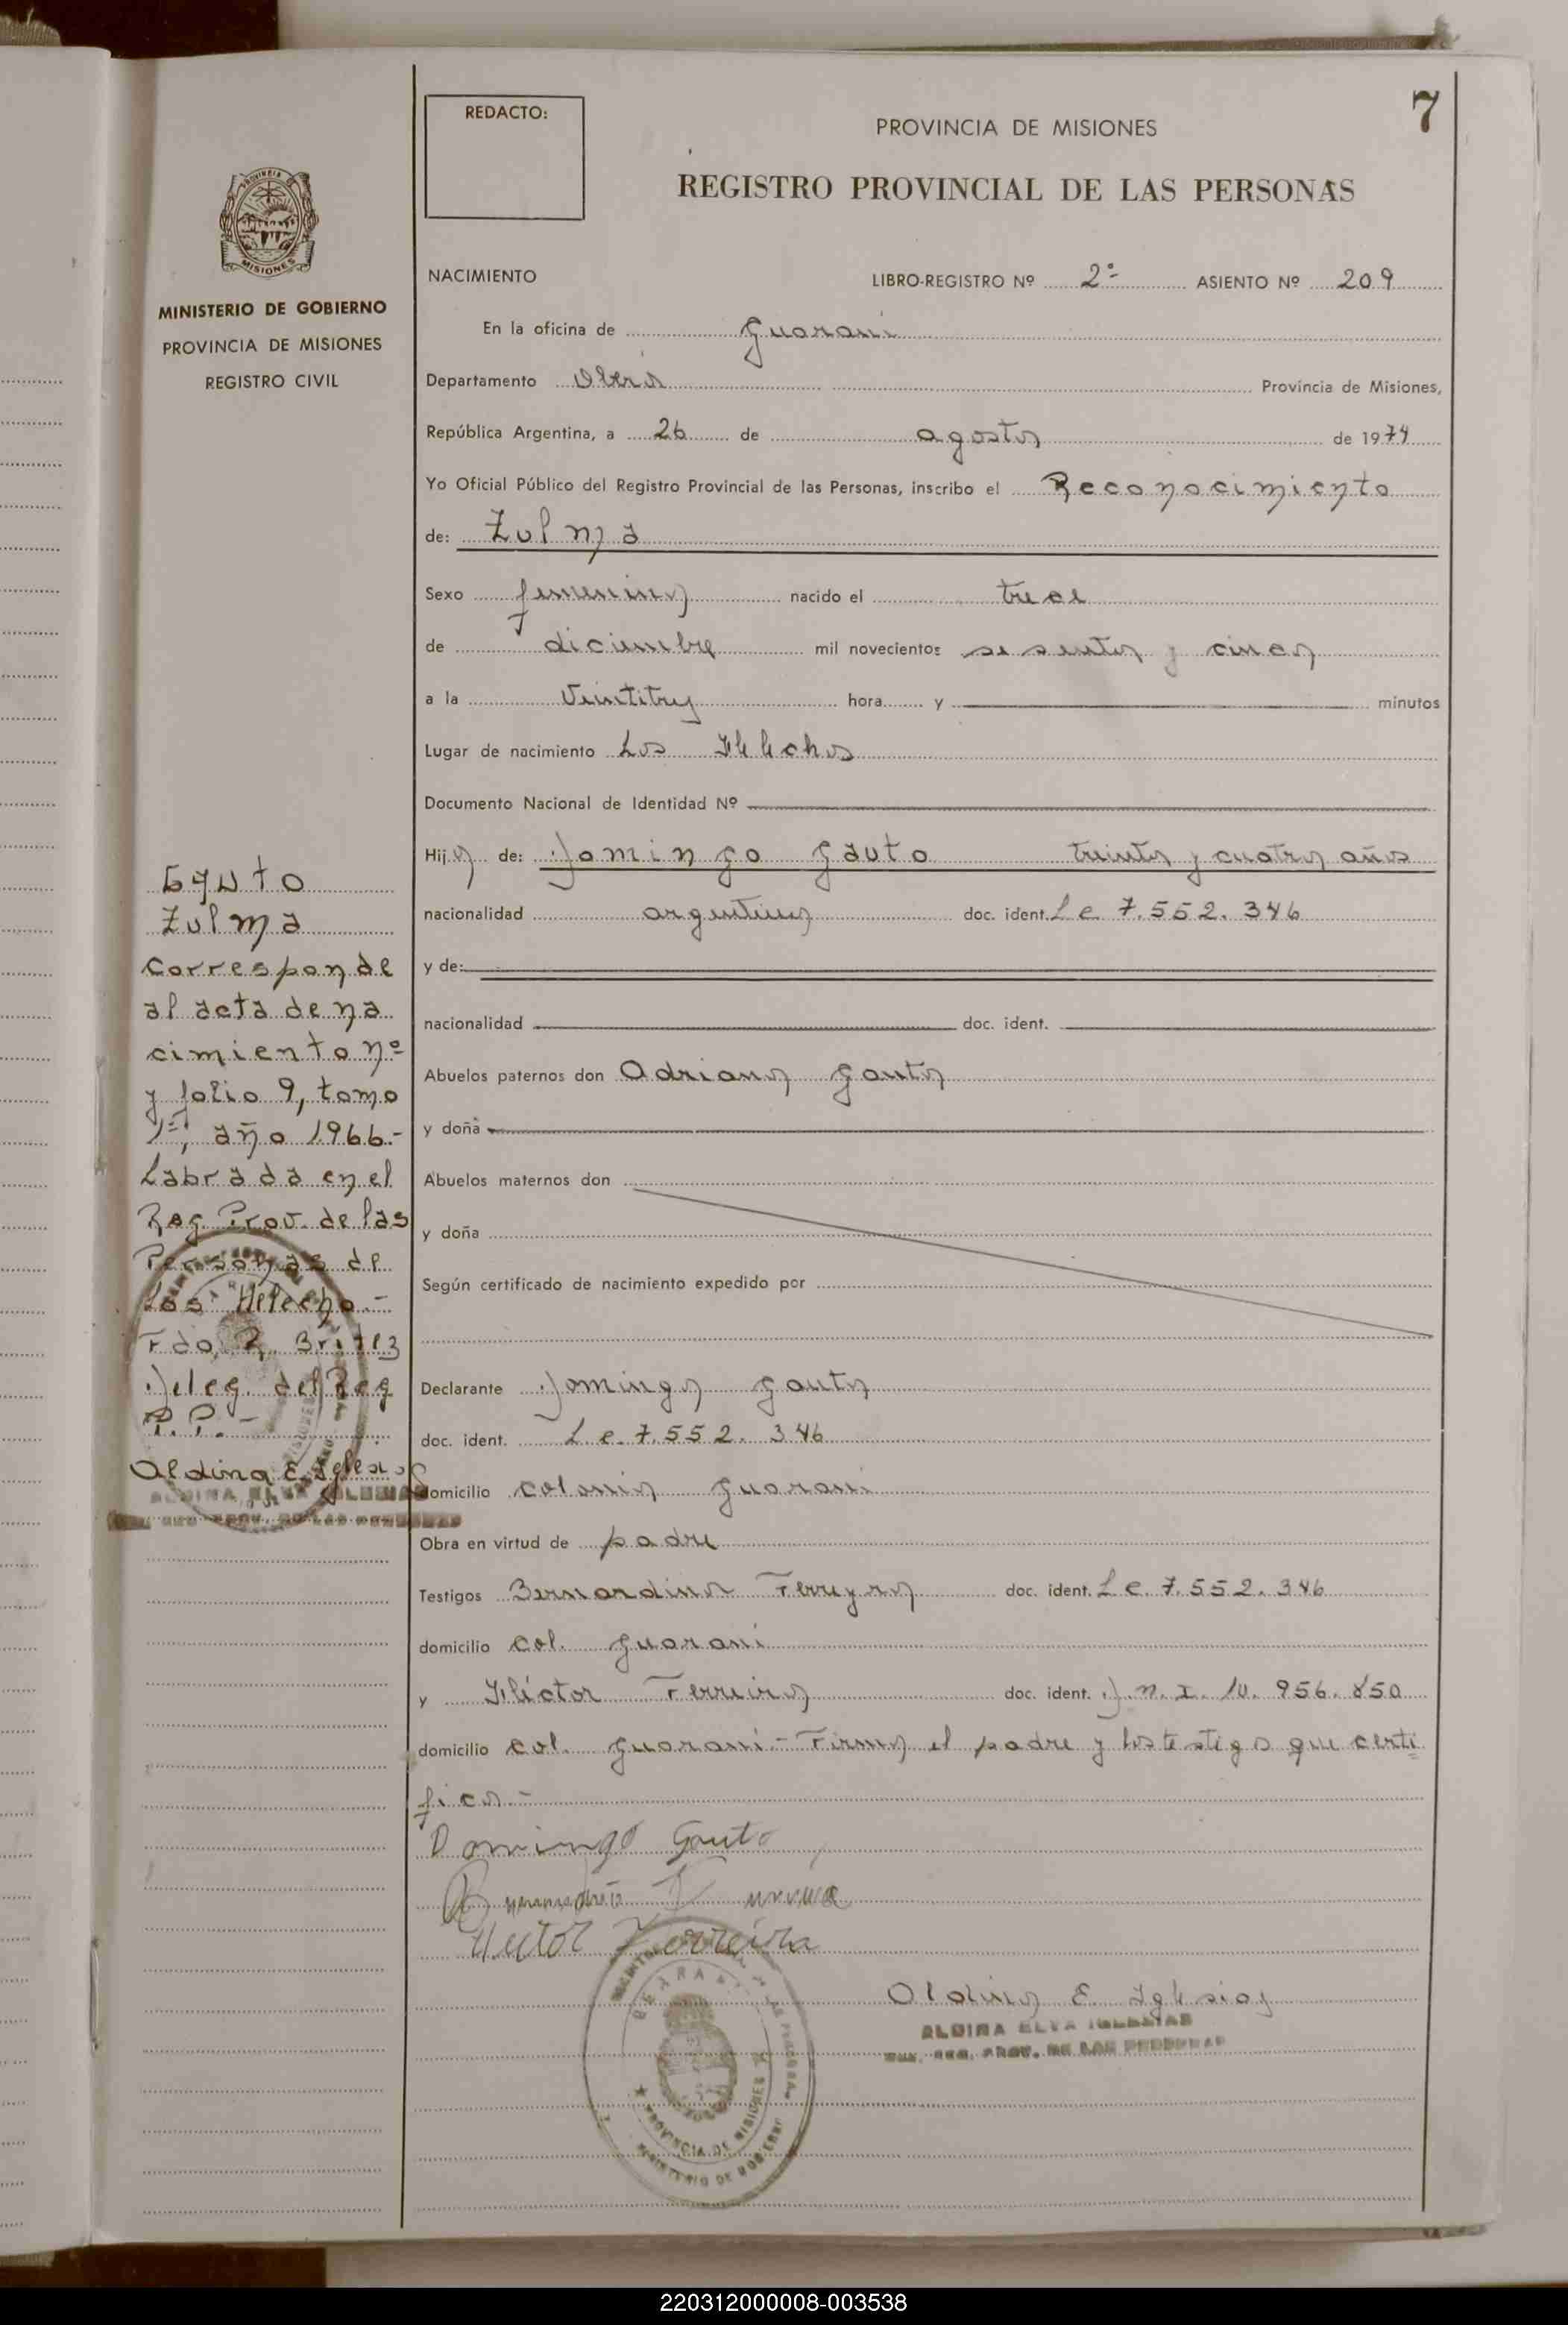 7
REDACTO:
PROVINCIA DE MISIONES
REGISTRO PROVINCIAL DE LAS PERSONAS
MISIONES
MINISTERIO DE GOBIERNO
PROVINCIA DE MISIONES
REGISTRO CIVIL
NACIMIENTO LIBRO-REGISTRO Nº 2º ASIENTO Nº 209
En la oficina de Guarani
Departamento Oberá Provincia de Misiones,
República Argentina, a 26 de agosto de 1974
Yo Oficial Público del Registro Provincial de las Personas, inscribo el Reconocimiento
de: Zulma
Sexo femenino nacido el trece
de diciembre mil novecientos sesenta y cinco
a la Veintitres hora y minutos
Lugar de nacimiento Los Helechos
Documento Nacional de Identidad Nº
Hijo de: Domingo Gauto treinta y cuatro años
nacionalidad argentino doc. ident. L e 7.552.346
y de:
nacionalidad doc. ident.
Abuelos paternos don Adriano Gauto
y doña
Abuelos maternos don
y doña
Según certificado de nacimiento expedido por
Declarante Domingo Gauto
doc. ident. L. e. 7.552.346
domicilio colonia Guarani
Obra en virtud de padre
Testigos Bernardino Ferreyra doc. ident. L e. 7.552.346
domicilio col. Guarani
y Héctor Ferreira doc. ident. D.N.I. 10.956.850
domicilio col. Guarani.- Firma el padre y los testigo que certi
fico.-
Domingo Gauto
Hector Ferreira
Aldina E. Iglesias
ALDINA ELVA IGLESIAS
REG. PROV. DE LAS PERSONAS
PROVINCIA DE MISIONES
MINISTERIO DE GOBIERNO
Gauto
Zulma
Corresponde
al acta de na
cimiento nº
y folio 9, tomo
1º, año 1966.-
Labrada en el
Reg. Prov. de las
Personas de
Los Helecho.-
Fdo, R. Britez
Deleg. del Reg
P.P.-
Aldina E. Iglesias
ALDINA ELVA IGLESIAS
REG. PROV. DE LAS PERSONAS
220312000008-003538